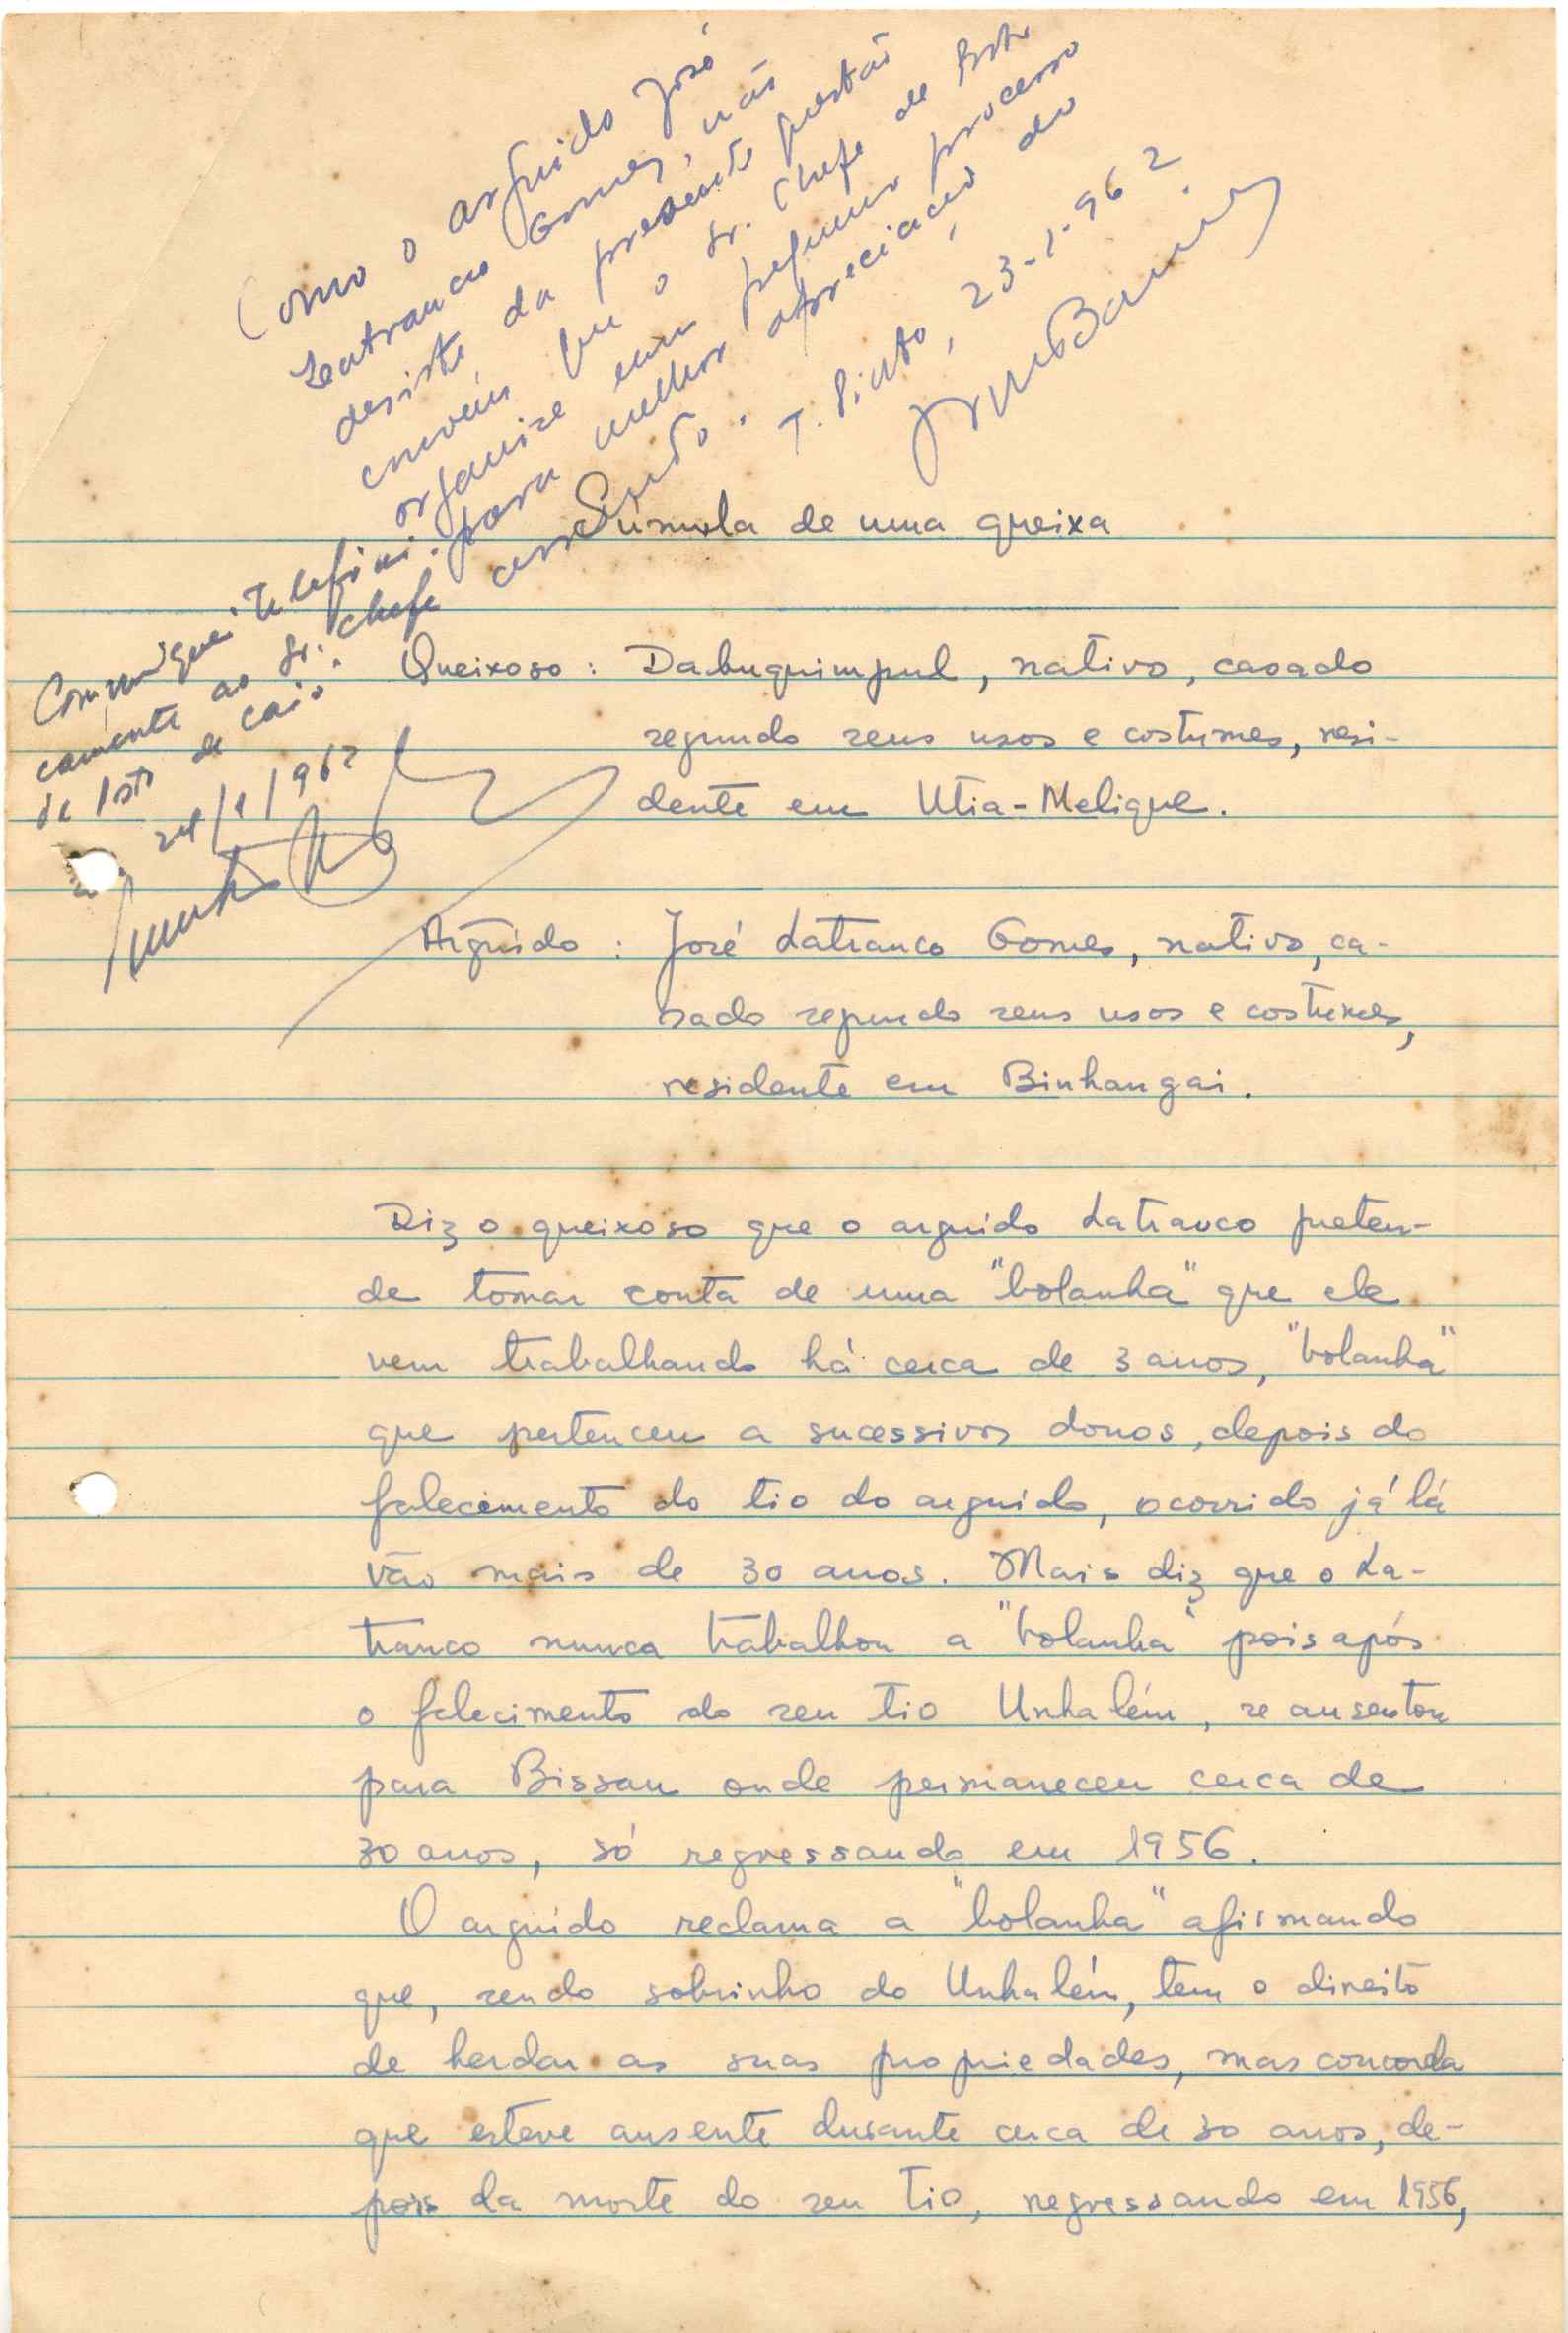 Como o arguido José
Leatranco Gomes, não
desiste da presente questão
convém que o Sr. Chefe de Posto
organize um pequeno processo
para melhor apreciação do
assunto.
T. Pinto, 23-1-962
Comuniquei telefoni-
camente ao Sr. Chefe
de Posto de Caió.
24/1/962
Súmula de uma queixa
Queixoso: Dabuquimpul, nativo, casado
segundo seus usos e costumes, resi-
dente em Utia-Melique.
Arguido: José Latranco Gomes, nativo, ca-
sado segundo seus usos e costumes,
residente em Binhangai.
Diz o queixoso que o arguido Latranco preten-
de tomar conta de uma "bolanha" que ele
vem trabalhando há cerca de 3 anos, "bolanha"
que pertenceu a sucessivos donos, depois do
falecimento do tio do arguido, ocorrido já lá
vão mais de 30 anos. Mais diz que o La-
tranco nunca trabalhou a "bolanha" pois após
o falecimento do seu tio Unhalém, se ausentou
para Bissau onde permaneceu cerca de
30 anos, só regressando em 1956.
O arguido reclama a "bolanha" afirmando
que, sendo sobrinho do Unhalém, tem o direito
de herdar as suas propriedades, mas concorda
que esteve ausente durante cerca de 30 anos, de-
pois da morte do seu tio, regressando em 1956,